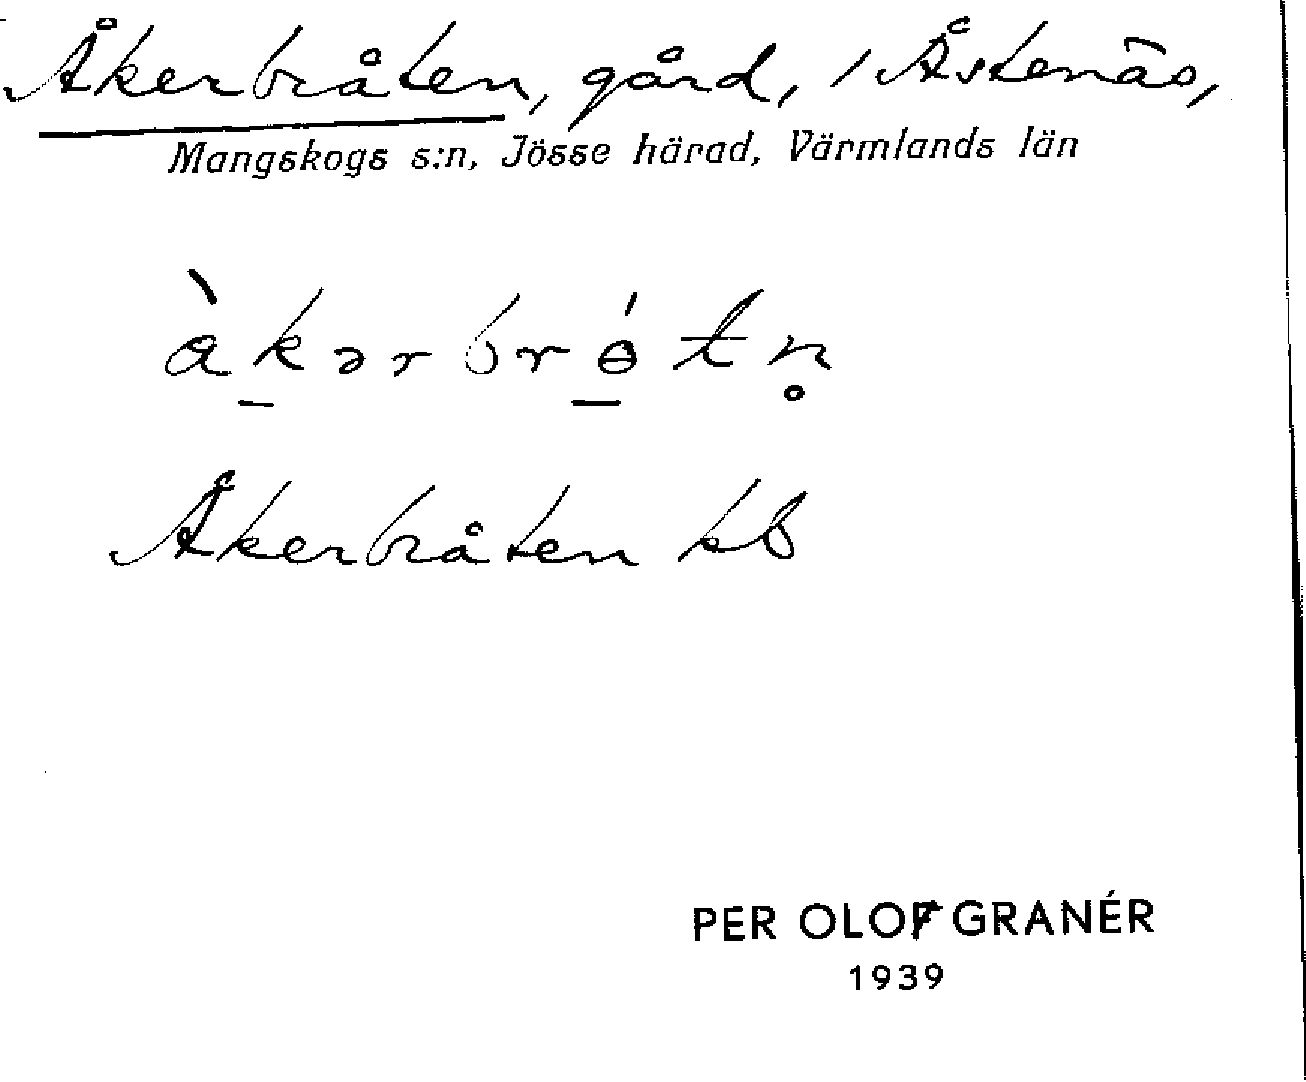 Åkerbråten, gård, i Åstenäs,
Mangskogs s:n, Jösse härad, Värmlands län
àk̠ərbrɵ̠́tn̥
Åkerbråten kb
PER OLOF GRANÉR
1939